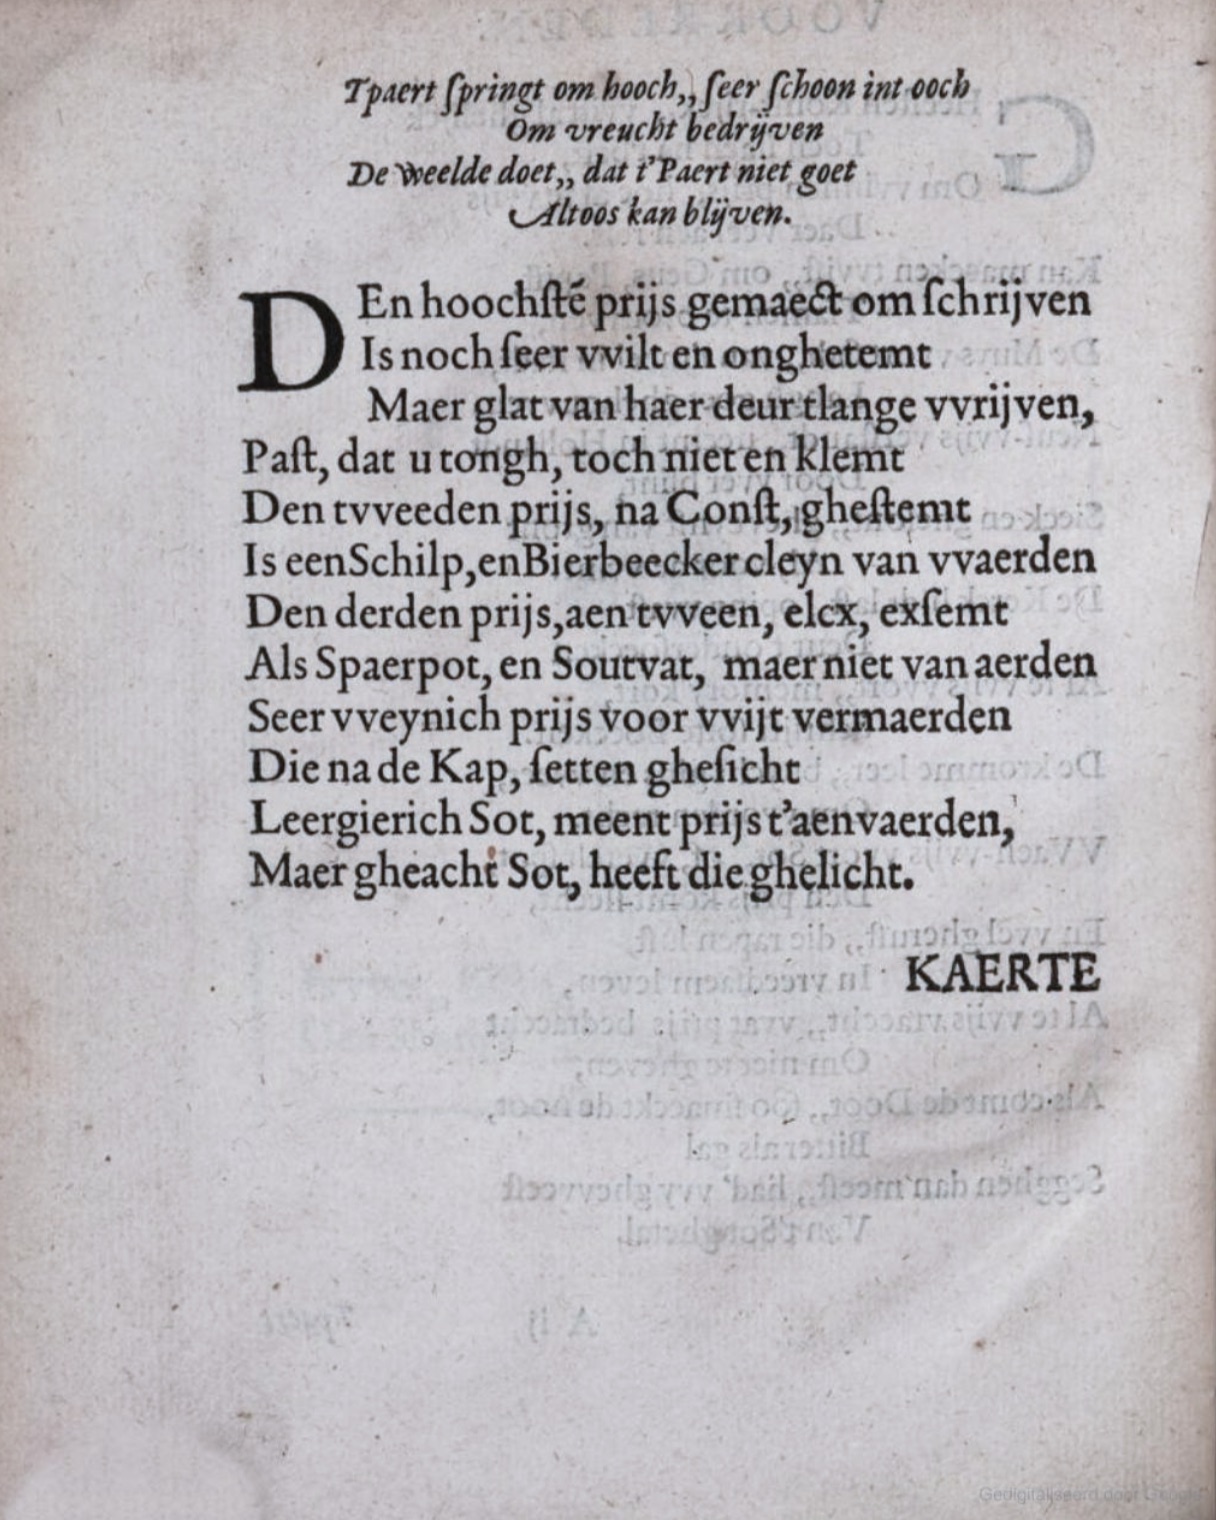 Tpaert ſpringt om hooch,, ſeer ſchoon int ooch
Om vreucht bedrijven
De weelde doet,, dat t'Paert niet goet
Altoos kan blijven.
DEn hoochſté prijs gemaect om ſchrijven
Is noch ſeer vvilt en onghetemt
Maer glat van haer deur tlange vvrijven,
Paſt, dat u tongh, toch niet en klemt
Den tvveeden prijs, na Conſt, gheſtemt
Is een Schilp, en Bierbeecker cleyn van vvaerden
Den derden prijs, aen tvveen, elcx, exſemt
Als Spaerpot, en Soutvat, maer niet van aerden
Seer vveynich prijs voor vvijt vermaerden
Die na de Kap, ſetten gheſicht
Leergierich Sot, meent prijs t'aenvaerden,
Maer gheacht Sot, heeft die ghelicht.
KAERTE
Gedigitaliseerd door Google